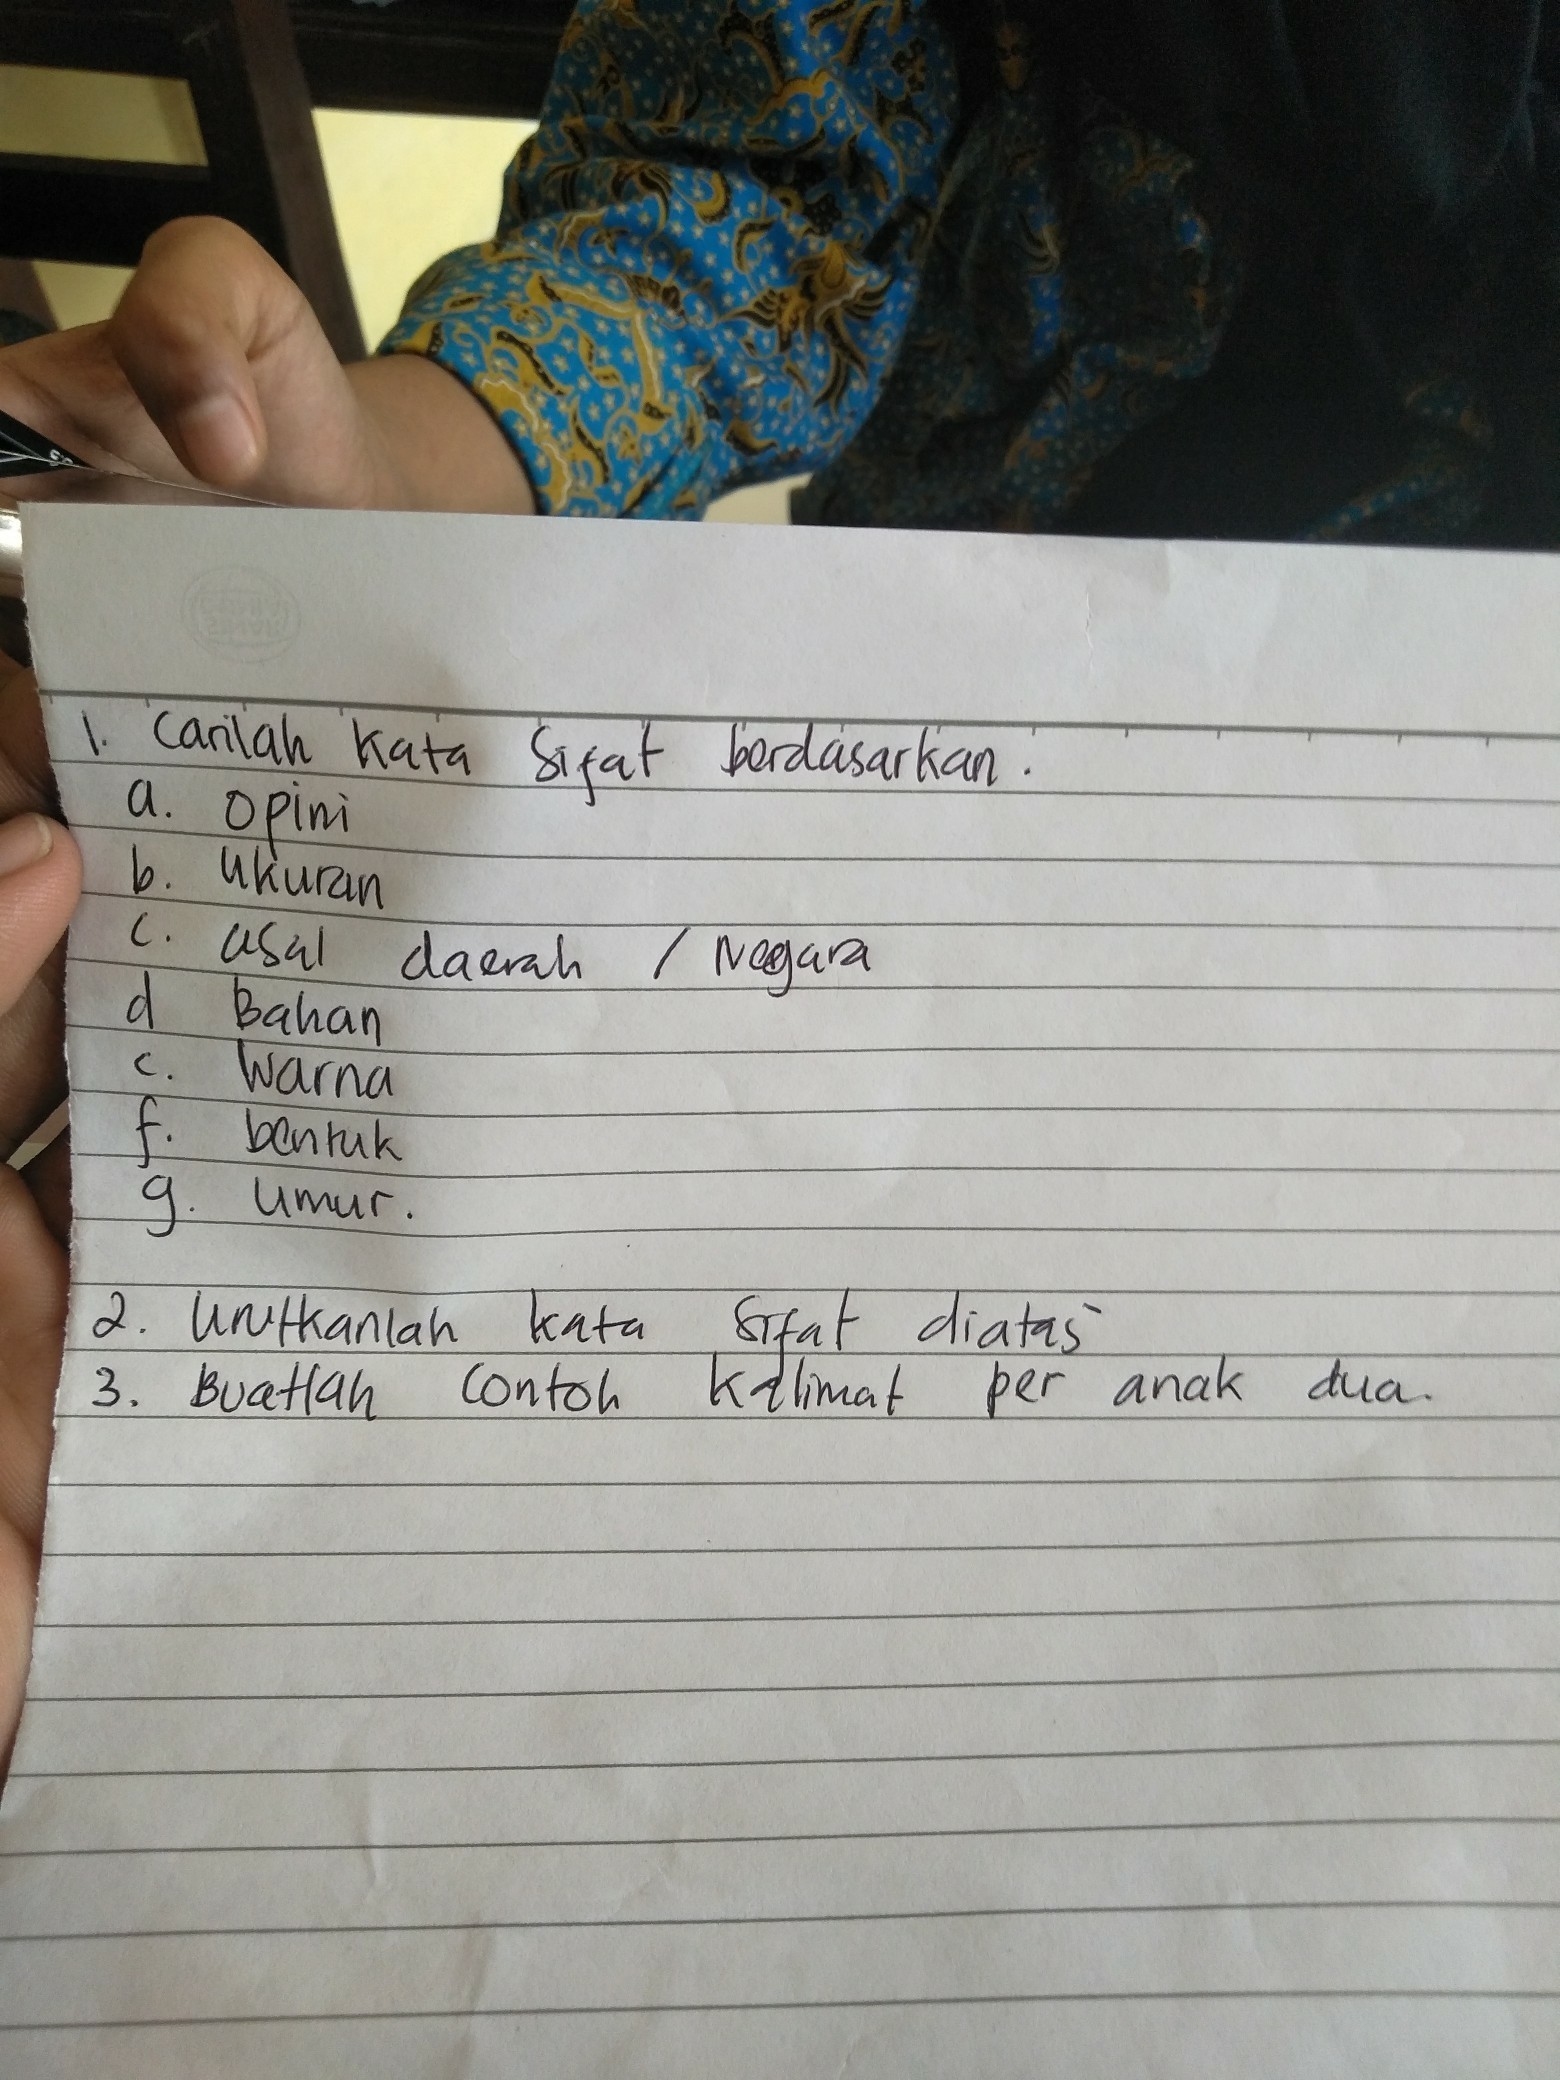 1. Carilah kata sifat berdasarkan.
a. opini
b. ukuran
c. asal daerah / Negara
d Bahan
e. Warna
f. bentuk
g. umur.
2. Urutkanlah kata sifat diatas
3. Buatlah contoh kalimat per anak dua.